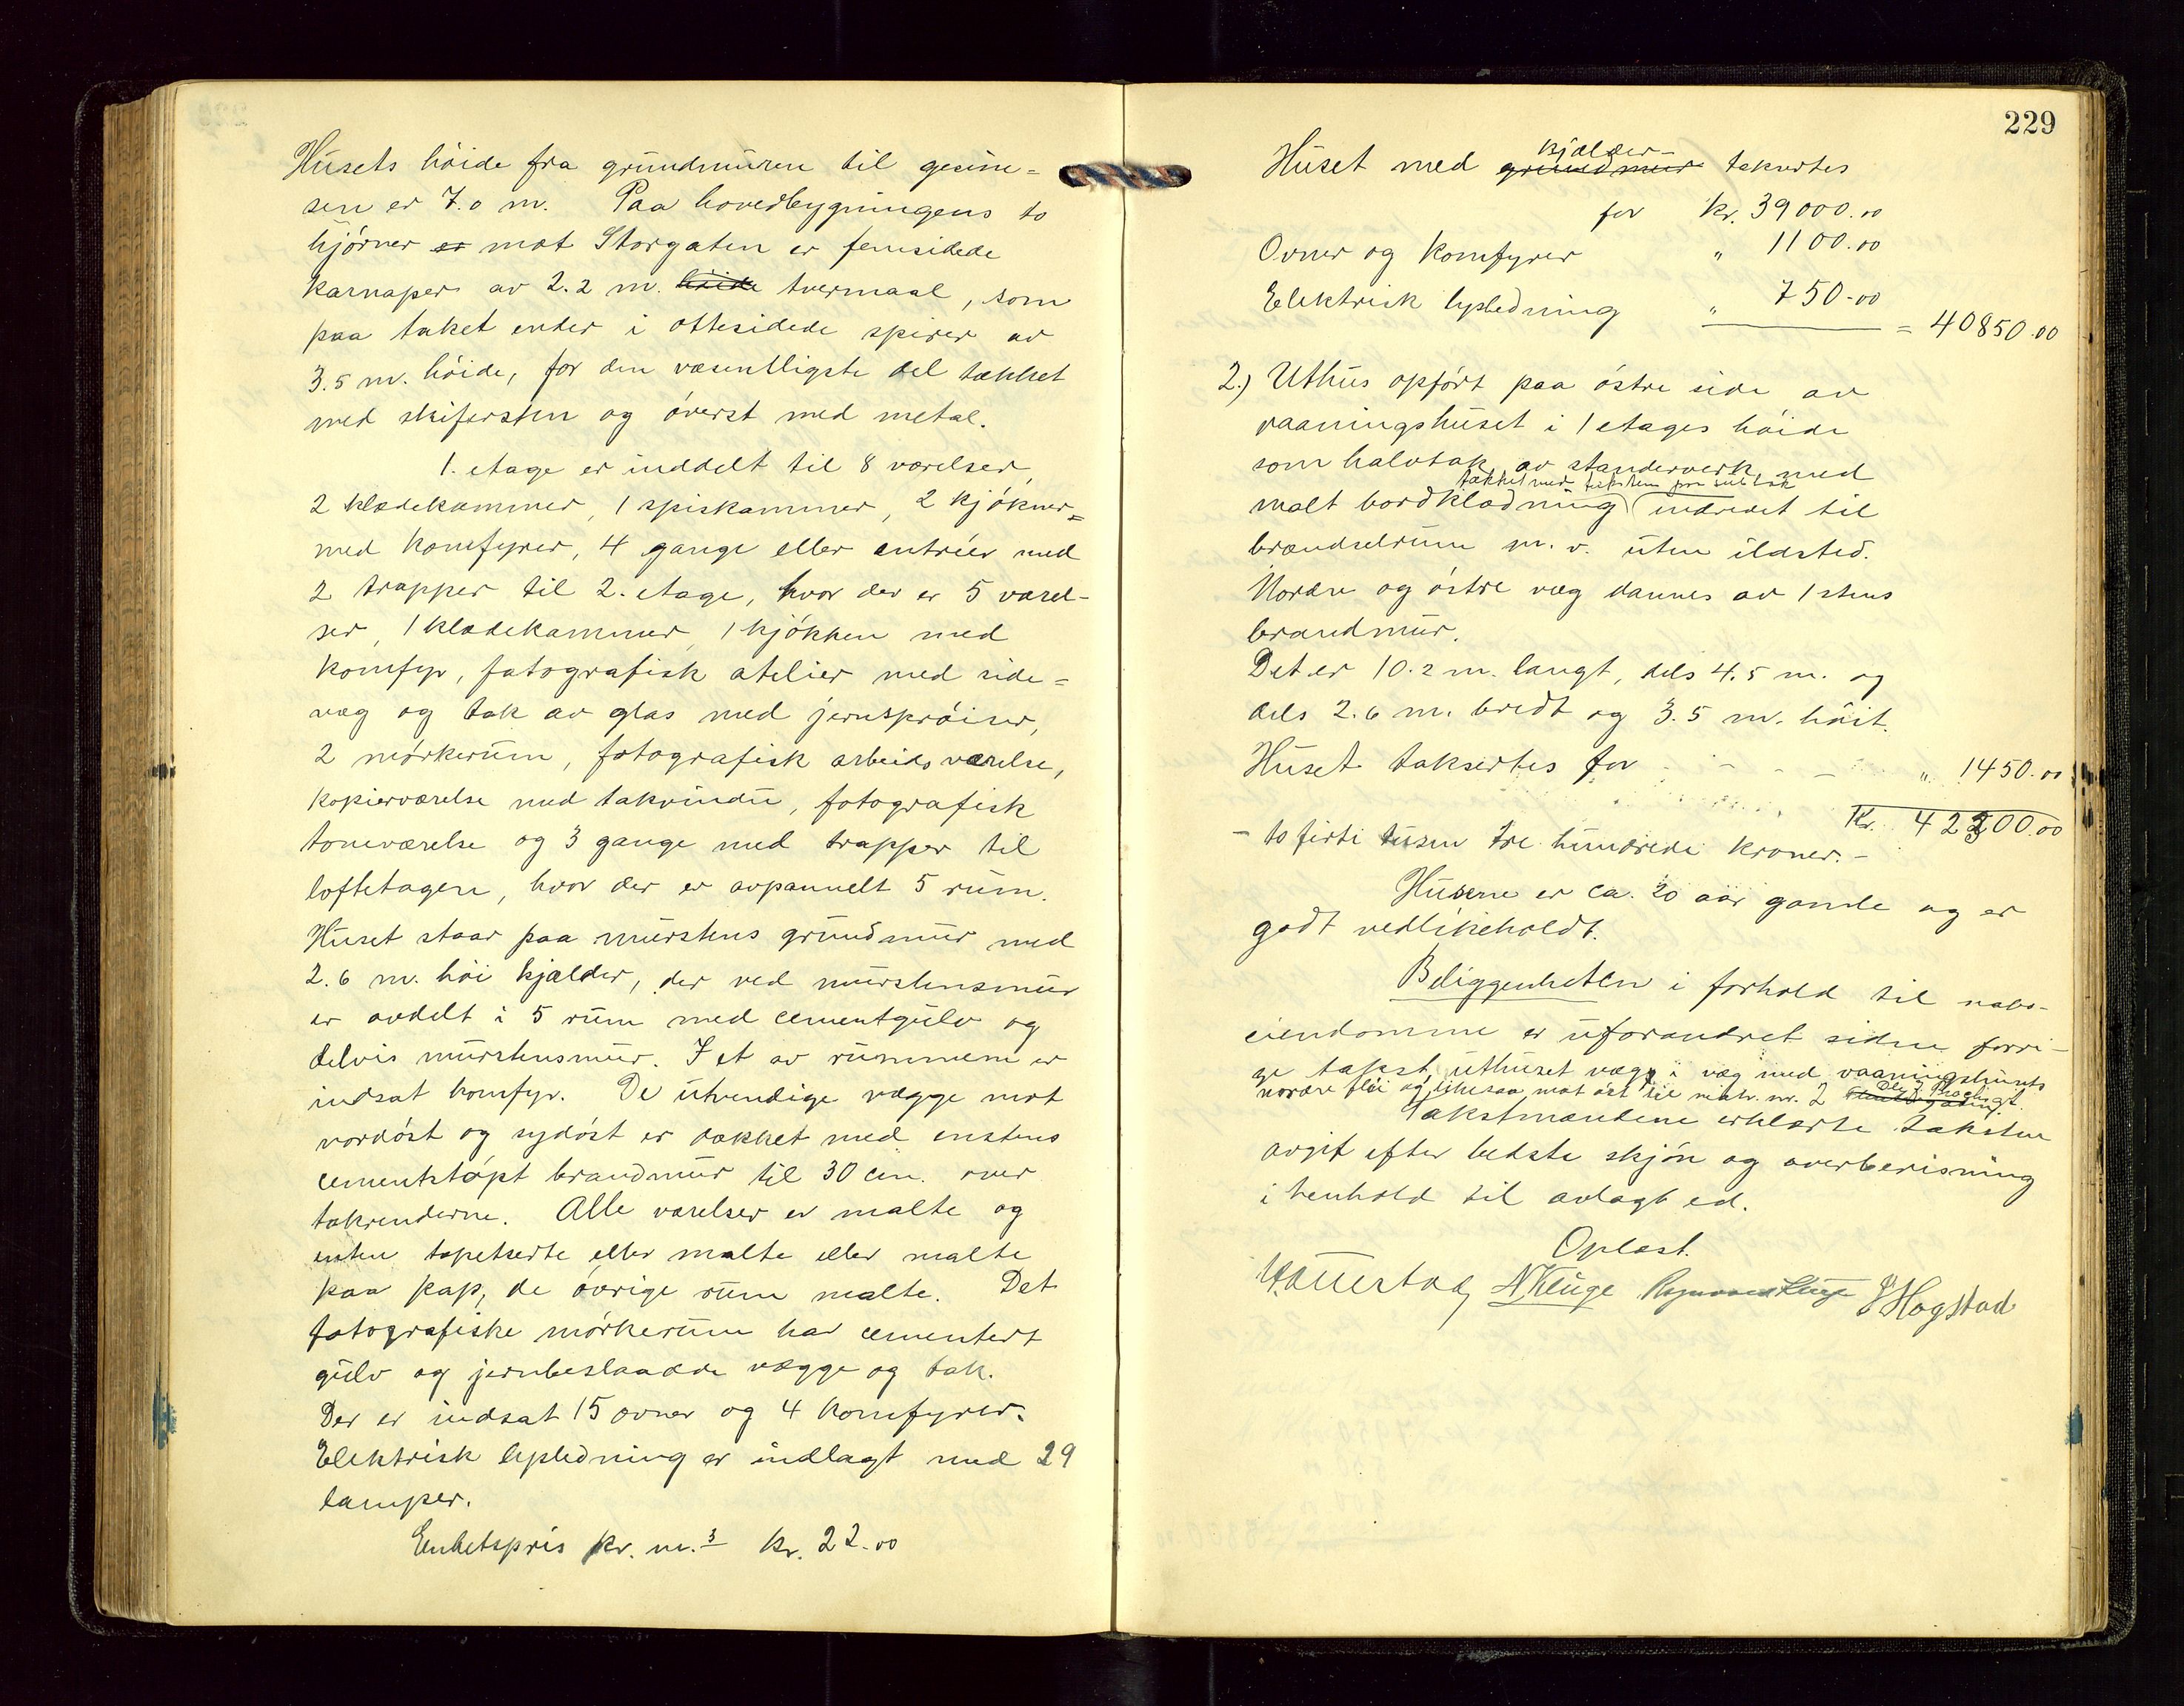 Husets höide fra grundmuren til gesim=
sen er 7.0 m. Paa hovedbygningens to
hjörner er mot Storgaten er femsidede
karnaper av 2.2 m. höide tvermaal, som
paa taket ender i ottesidede spirer av
3.5 m. höide, for den væsentligste del tækket
med skifersten og överst med metal.
1. etage er inddelt til 8 værelser,
2 klædekammer, 1 spiskammer, 2 kjökner=
med komfyrer, 4 gange eller entréer med
2 trapper til 2. etage, hvor der er 5 værel-
ser, 1 klædekammer, 1 kjökken med
komfyr, fotografisk atelier med side=
væg og tak av glas med jernspröiser,
2 mörkerum, fotografisk arbeidsværelse,
kopierværelse med takvindu, fotografisk
toneværelse og 3 gange med trapper til
loftetagen, hvor der er avpannelt 5 rum.
Huset staar paa murstens grundmur med
2.6 m. höi kjælder, der ved murstensmur
er avdelt i 5 rum med cementgulv og
delvis murstensmur. I et av rummene er
indsat komfyr. De utvendige vægge mot
nordöst og sydöst er dækket med enstens
cementstöpt brandmur til 30 cm. over
takrenderne. Alle værelser er malte og
enten tapetserte eller malte eller malte
paa pap, de övrige rum malte. Det
fotografiske mörkerum har cementert
gulv og jernbeslaaede vægge og tak.
Der er indsat 15 ovner og 4 komfyrer.
Elektrisk lysledning er indlagt med 29
lamper.
Enhetspris pr. m.³ kr. 22.00
229
kjælder-
Huset med grundmur takseres
for kr. 39000.00
Ovner og komfyrer " 1100.00
Elektrisk lysledning " 750.00
= 40850.00
2.) Uthus opfört paa östre side av
vaaningshuset i 1 etages höide
som halvtak, av standerverk, med
tækket med
malt bordklædning indredet til
brændselrum m. v. uten ildsted.
Nordre og östre væg dannes av 1 stens
brandmur.
Det er 10.2 m. langt, dels 4.5 m. og
dels 2.6 m. bredt og 3.5 m. höit.
Huset takseres for - - - - " 1450.00
Kr. 42300.00
- to firti tusen tre hundrede kroner. -
Husene er ca. 20 aar gamle og er
godt vedlikeholdt.
Beliggenheten i forhold til nabo-
eiendomme er uforandret siden forri-
ge takst, uthuset væg i væg med vaaningshusets
nordre flöi og likesaa mot öst til matr. nr. 2
Takstmændene erklærte taksten
avgit efter bedste skjön og overbevisning
i henhold til avlagt ed.
Oplæst.
N Kluge J Hogstad